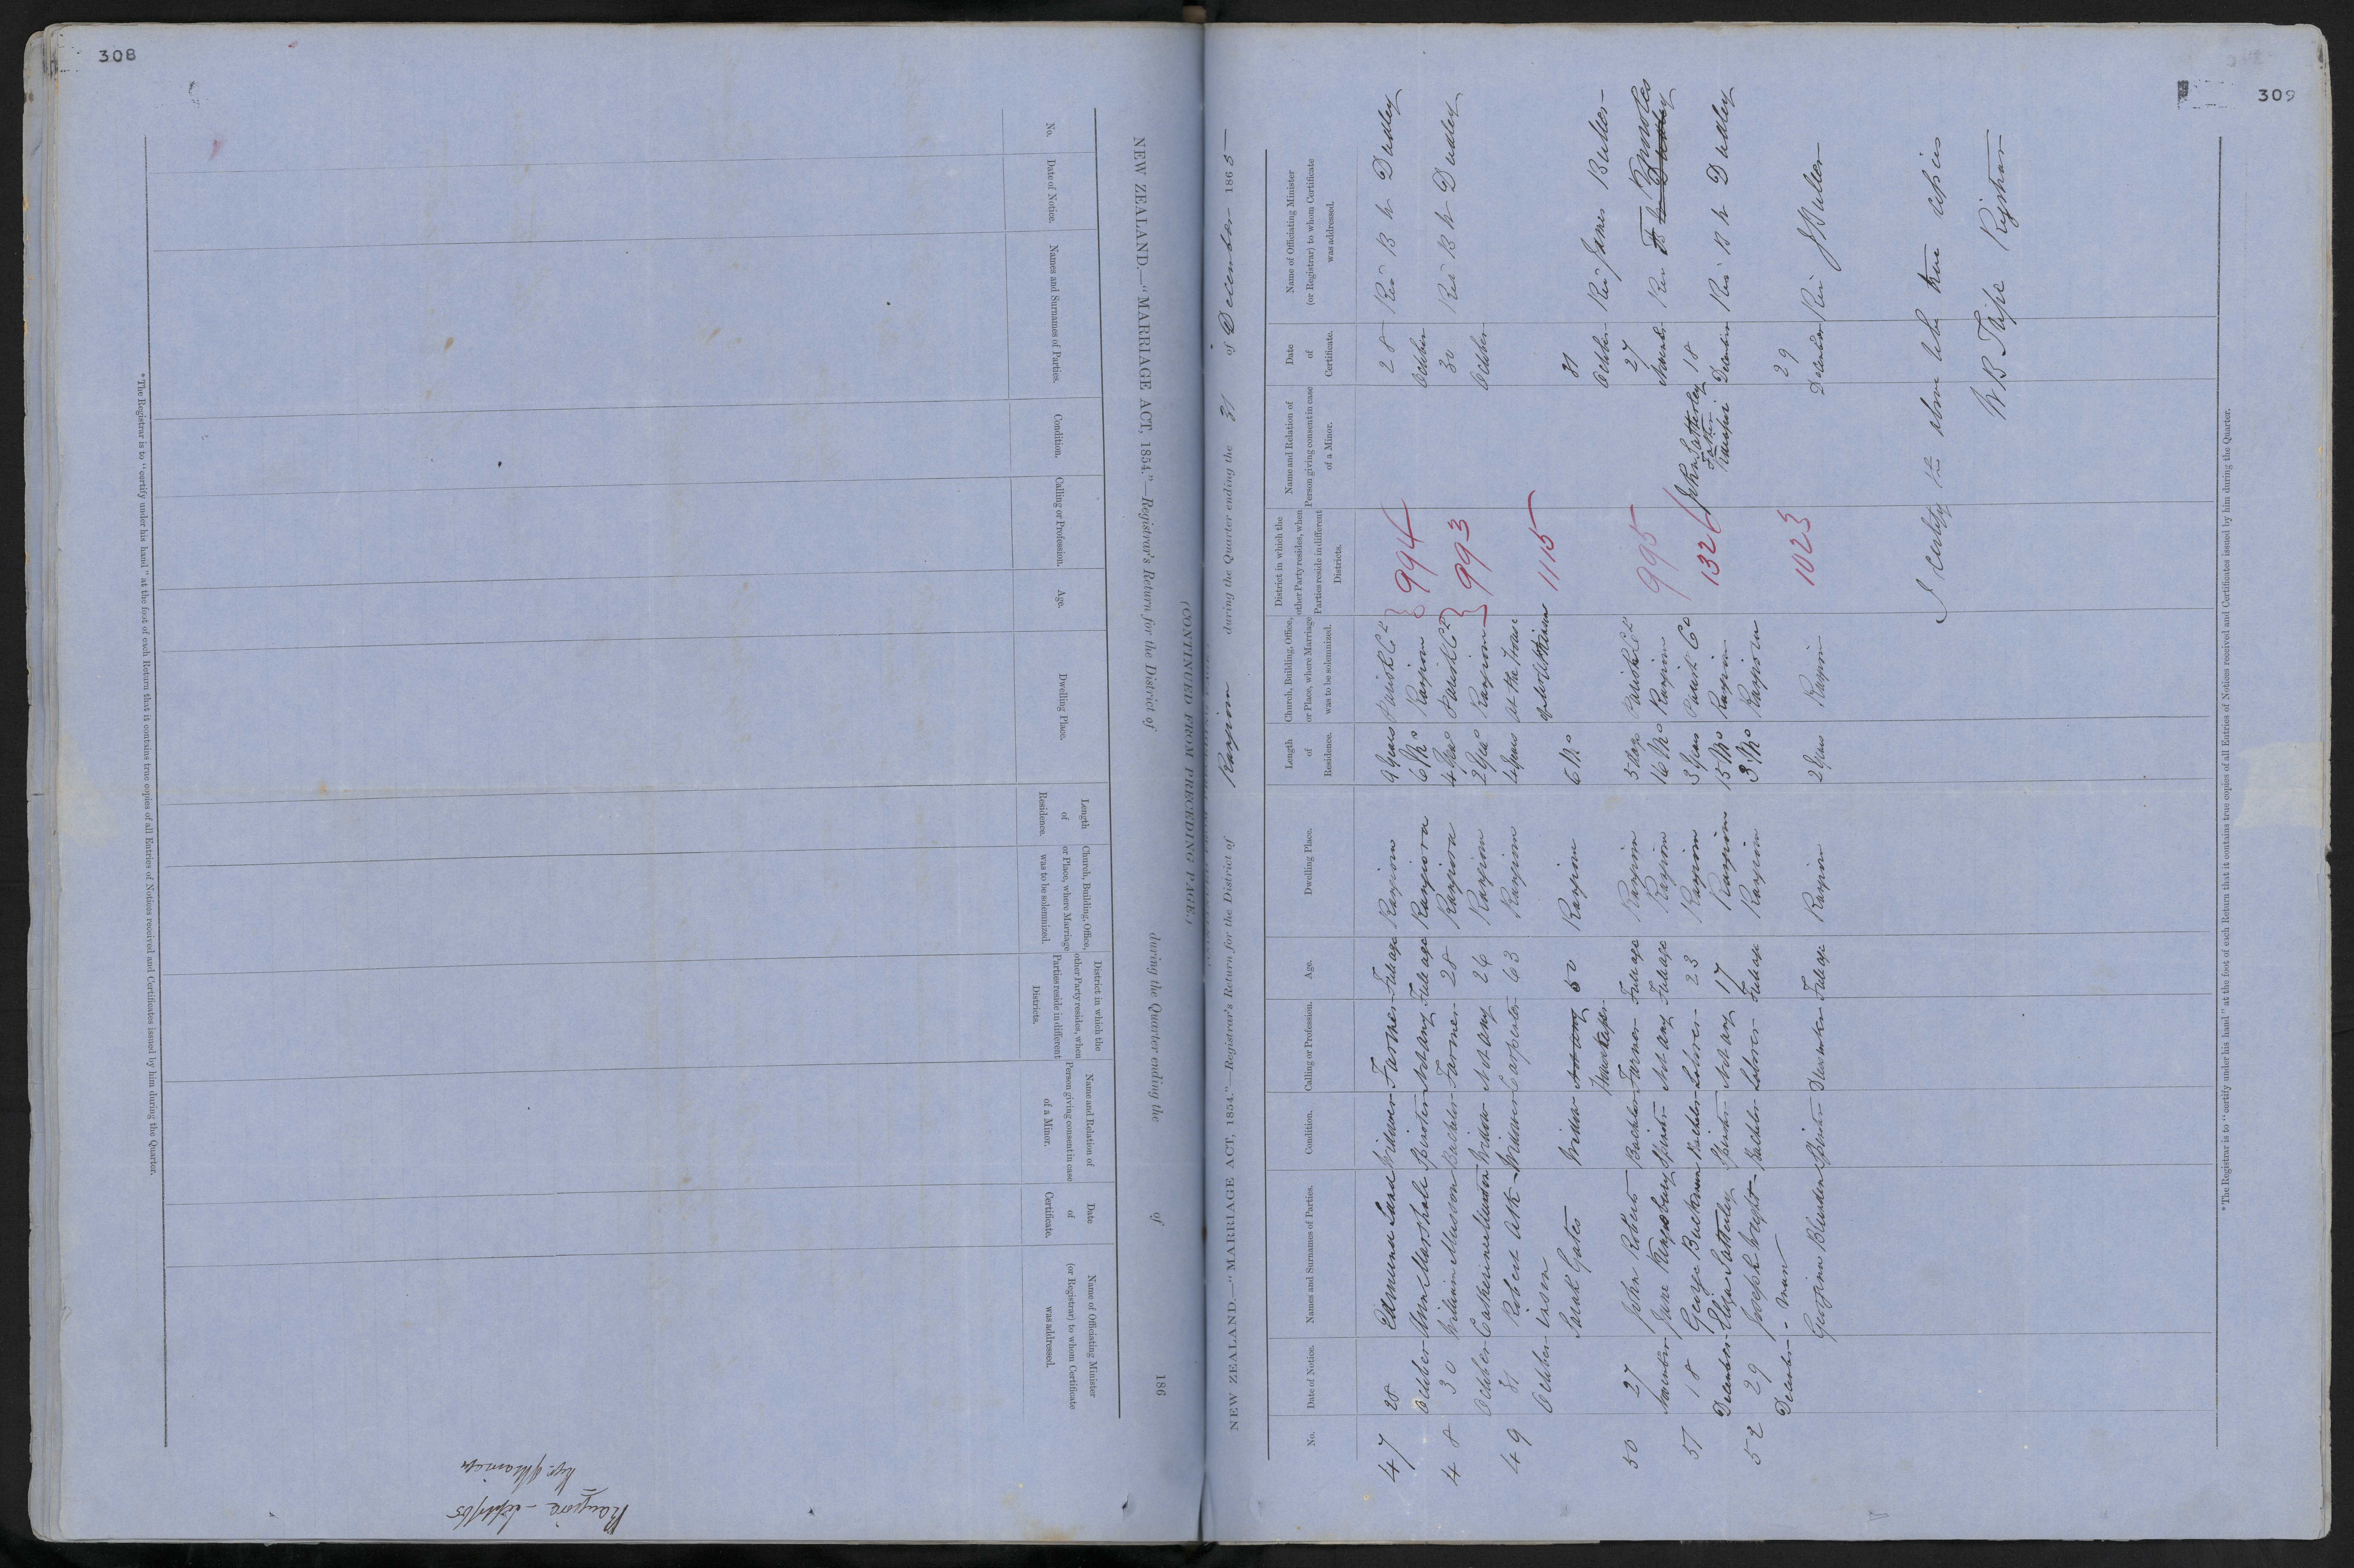 308
NEW ZEALAND.—"MARRIAGE ACT, 1854."—Registrar's Return for the District of during the Quarter ending the of 186
(CONTINUED FROM PRECEDING PAGE.)
No. Date of Notice. Names and Surnames of Parties. Condition. Calling or Profession. Age. Dwelling Place. Length of Residence. Church, Building, Office, or Place, where Marriage was to be solemnized. District in which the other Party resides, when Parties reside in different Districts. Name and Relation of Person giving consent in case of a Minor. Date of Certificate. Name of Officiating Minister (or Registrar) to whom Certificate was addressed.
*The Registrar is to "certify under his hand" at the foot of each Return that it contains true copies of all Entries of Notices received and Certificates issued by him during the Quarter.
309
NEW ZEALAND.—"MARRIAGE ACT, 1854."—Registrar's Return for the District of Rangiora during the Quarter ending the 31 of December 1865
No. Date of Notice. Names and Surnames of Parties. Condition. Calling or Profession. Age. Dwelling Place. Length of Residence. Church, Building, Office, or Place, where Marriage was to be solemnized. District in which the other Party resides, when Parties reside in different Districts. Name and Relation of Person giving consent in case of a Minor. Date of Certificate. Name of Officiating Minister (or Registrar) to whom Certificate was addressed.
47 28 Edmund Widower Farmer Full age Rangiora 9 years Parish Ch 994 28 Rev B W Dudley
October Ann Marshall Spinster Not any Full age Rangiora 6 Mo Rangiora October
48 30 William Musson Bachelor Farmer 28 Rangiora 4 Parish Ch 993 30 Rev B W Dudley
October Catherine Widow Not any 26 Rangiora 2 Rangiora October
49 31 Robert Atk Widower Carpenter 63 Rangiora 4 years At the house 1115
October inson of
Sarah Gates Widow Not any 50 Rangiora 6 Mo 31 Rev James Buller
Housekeeper October
50 27 John Roberts Bachelor Farmer Full age Rangiora 5 Parish Ch 995 27 Rev
November Jane Kingsbury Spinster Not any Full age Rangiora 16 Mo Rangiora November
51 18 George Bachelor Laborer 23 Rangiora 3 years Parish Ch 1326 John Satterley 18 Rev B W Dudley
December Eliza Satterley Spinster Not any 17 Rangiora 15 Mo Rangiora Father December
52 29 Joseph Wright Bachelor Laborer Full age Rangiora 3 Mo Rangiora 1023 29 Rev J Buller
December man December
Georgina Blunden Spinster Full age Rangiora 2 years Rangiora
I certify the above to be true copies
W B Registrar
*The Registrar is to "certify under his hand" at the foot of each Return that it contains true copies of all Entries of Notices received and Certificates issued by him during the Quarter.